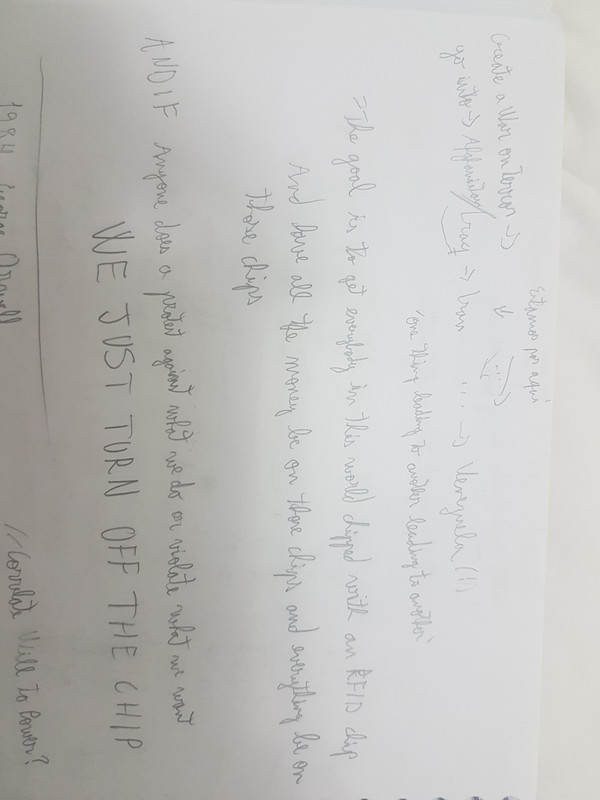 Create a War on Terror →
go into → Afghanistan/Iraq → Iran ... → Venezuela (!)
Estamos por aqui
"one thing leading to another leading to another"
→ The goal is to get everybody in this world chipped with an RFID chip
And have all the money be on those chips and everything be on
those chips
AND IF Anyone does a protest against what we do or violate what we want
WE JUST TURN OFF THE CHIP
1984 George Orwell
// Correlate Will to Power?